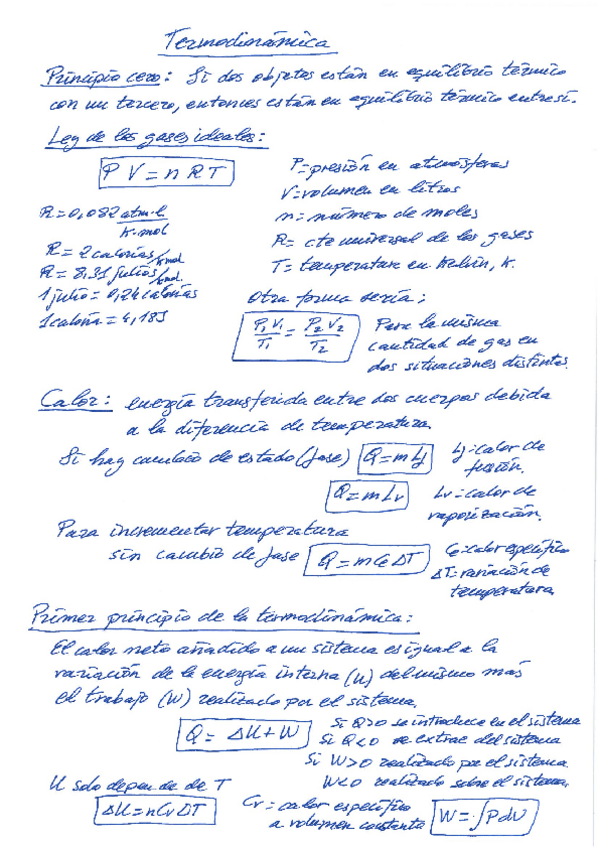 Termodinámica
Principio cero: Si dos objetos están en equilibrio térmico
con un tercero, entonces están en equilibrio térmico entre sí.
Ley de los gases ideales:
P V = n R T
P = presión en atmósferas
V = volumen en litros
n = número de moles
R = cte universal de los gases
T = temperatura en Kelvin, K.
R = 0,082 atm·l / K·mol
R = 2 calorías/K mol
R = 8,31 julios/K mol.
1 julio = 0,24 calorías
1 caloría = 4,18 J
Otra forma sería:
P₁V₁/T₁ = P₂V₂/T₂
Para la misma
cantidad de gas en
dos situaciones distintas.
Calor: energía transferida entre dos cuerpos debida
a la diferencia de temperatura.
Si hay cambio de estado (fase) Q = m Lf
Lf = calor de
fusión.
Q = m Lv
Lv = calor de
vaporización.
Para incrementar temperatura
sin cambio de fase Q = m Ce ΔT
Ce = calor específico
ΔT = variación de
temperatura
Primer principio de la termodinámica:
El calor neto añadido a un sistema es igual a la
variación de la energía interna (U) del mismo más
el trabajo (W) realizado por el sistema.
Q = ΔU + W
Si Q>0 se introduce en el sistema
Si Q<0 se extrae del sistema
Si W>0 realizado por el sistema.
W<0 realizado sobre el sistema.
U solo depende de T
ΔU = n Cv ΔT
Cv = calor específico
a volumen constante
W = ∫P dV